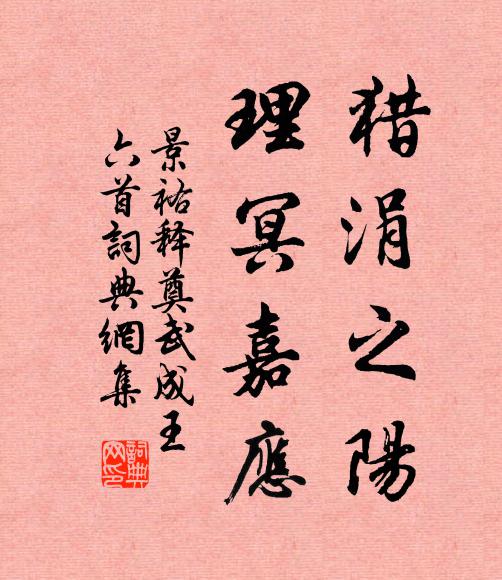 猎涓之陽
理冥嘉應
景祐释奠武成王
六首詞典網集
詞典
网印